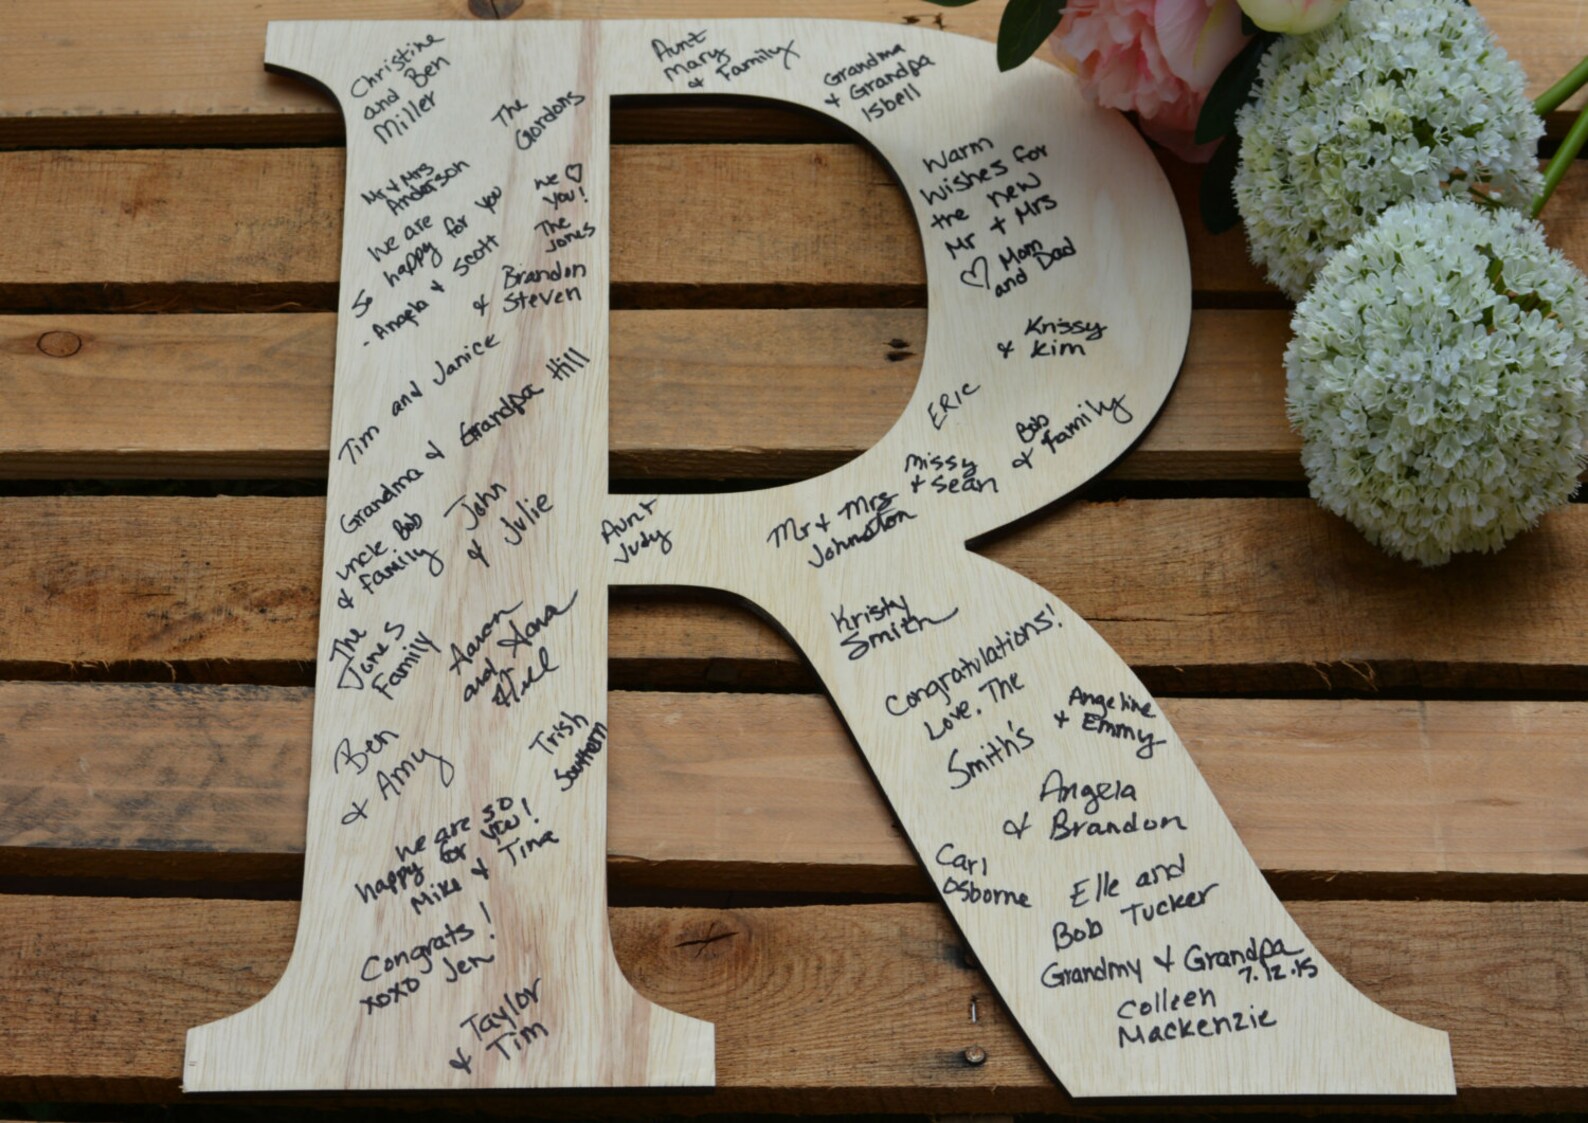 Christine
and Ben
Miller
The
Gordons
Mr & Mrs
Anderson
We ♡
you!
The
Jones
We are
so happy for you
- Angela & Scott
Brandon
& Steven
Tim and Janice
Grandma & Grandpa Hill
Uncle Bob
& Family
John
& Julie
The
Jones
Family
Aaron
and Hana
Hill
Ben
& Amy
Trish
Southern
We are so
happy for you!
Mike & Tina
Congrats!
xoxo Jen
Taylor
& Tim
Aunt
Mary
& Family
Grandma
& Grandpa
Isbell
Warm
Wishes for
the new
Mr + Mrs
♡ Mom
and Dad
Krissy
& Kim
Eric
Bob
& Family
Missy
+ Sean
Mr + Mrs
Johnston
Aunt
Judy
Kristy
Smith
Congratulations!
Love, The
Smith's
Angeline
& Emmy
Angela
& Brandon
Carl
Osborne
Elle and
Bob Tucker
Grandmy & Grandpa
7.12.15
Colleen
Mackenzie